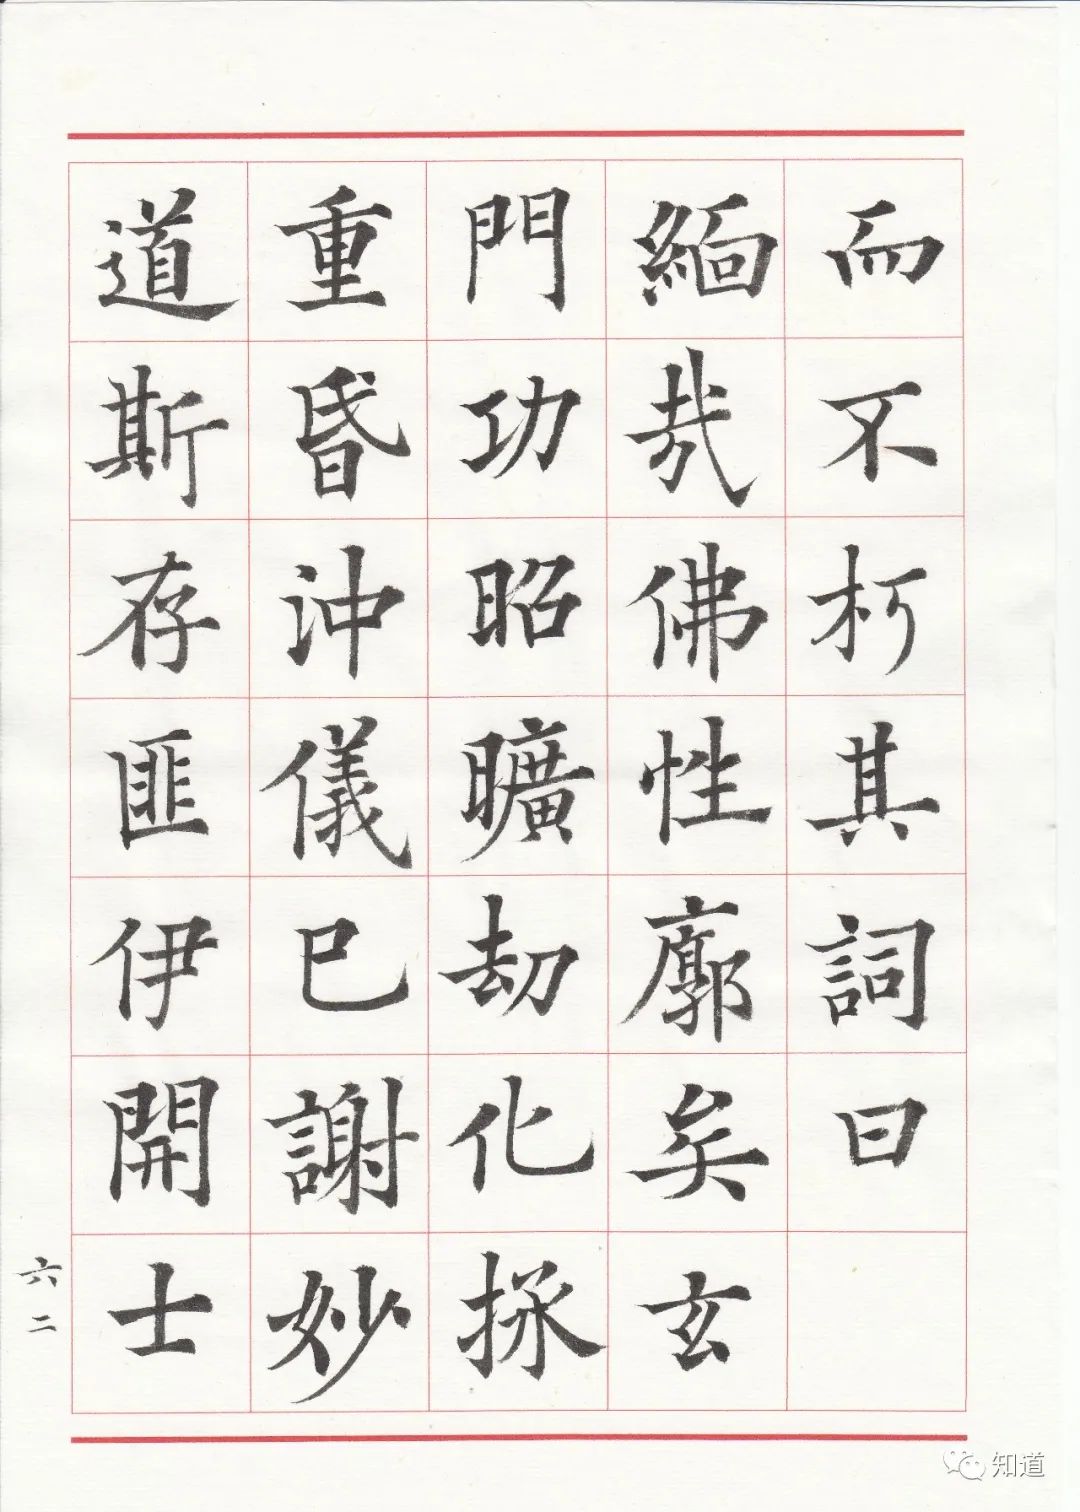 而不朽其詞曰
緬哉佛性廓矣玄
門功昭曠劫化拯
重昏沖儀已謝妙
道斯存匪伊開士
六二
知道